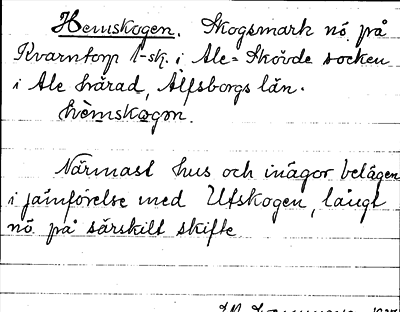 Hemskogen. Skogsmark nö. på
Kvarntorp 1-sk. i Ale-Skövde socken
i Ale härad, Älfsborgs län.
hèmskogɔn.
Närmast hus och inägor belägen
i jämförelse med Utskogen, långt
nö på särskilt skifte